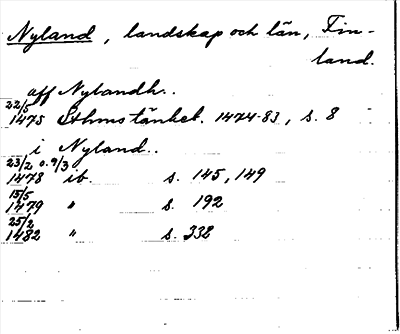 Nyland, landskap och län, Fin-
land.
aff Nylandh..
22/5
1475 Sthms tänkeb. 1474-83, s. 8
i Nyland..
23/2 o. 9/3
1478 ib. s. 145, 149
15/5
1479 " s. 192
25/2
1482 " s. 338